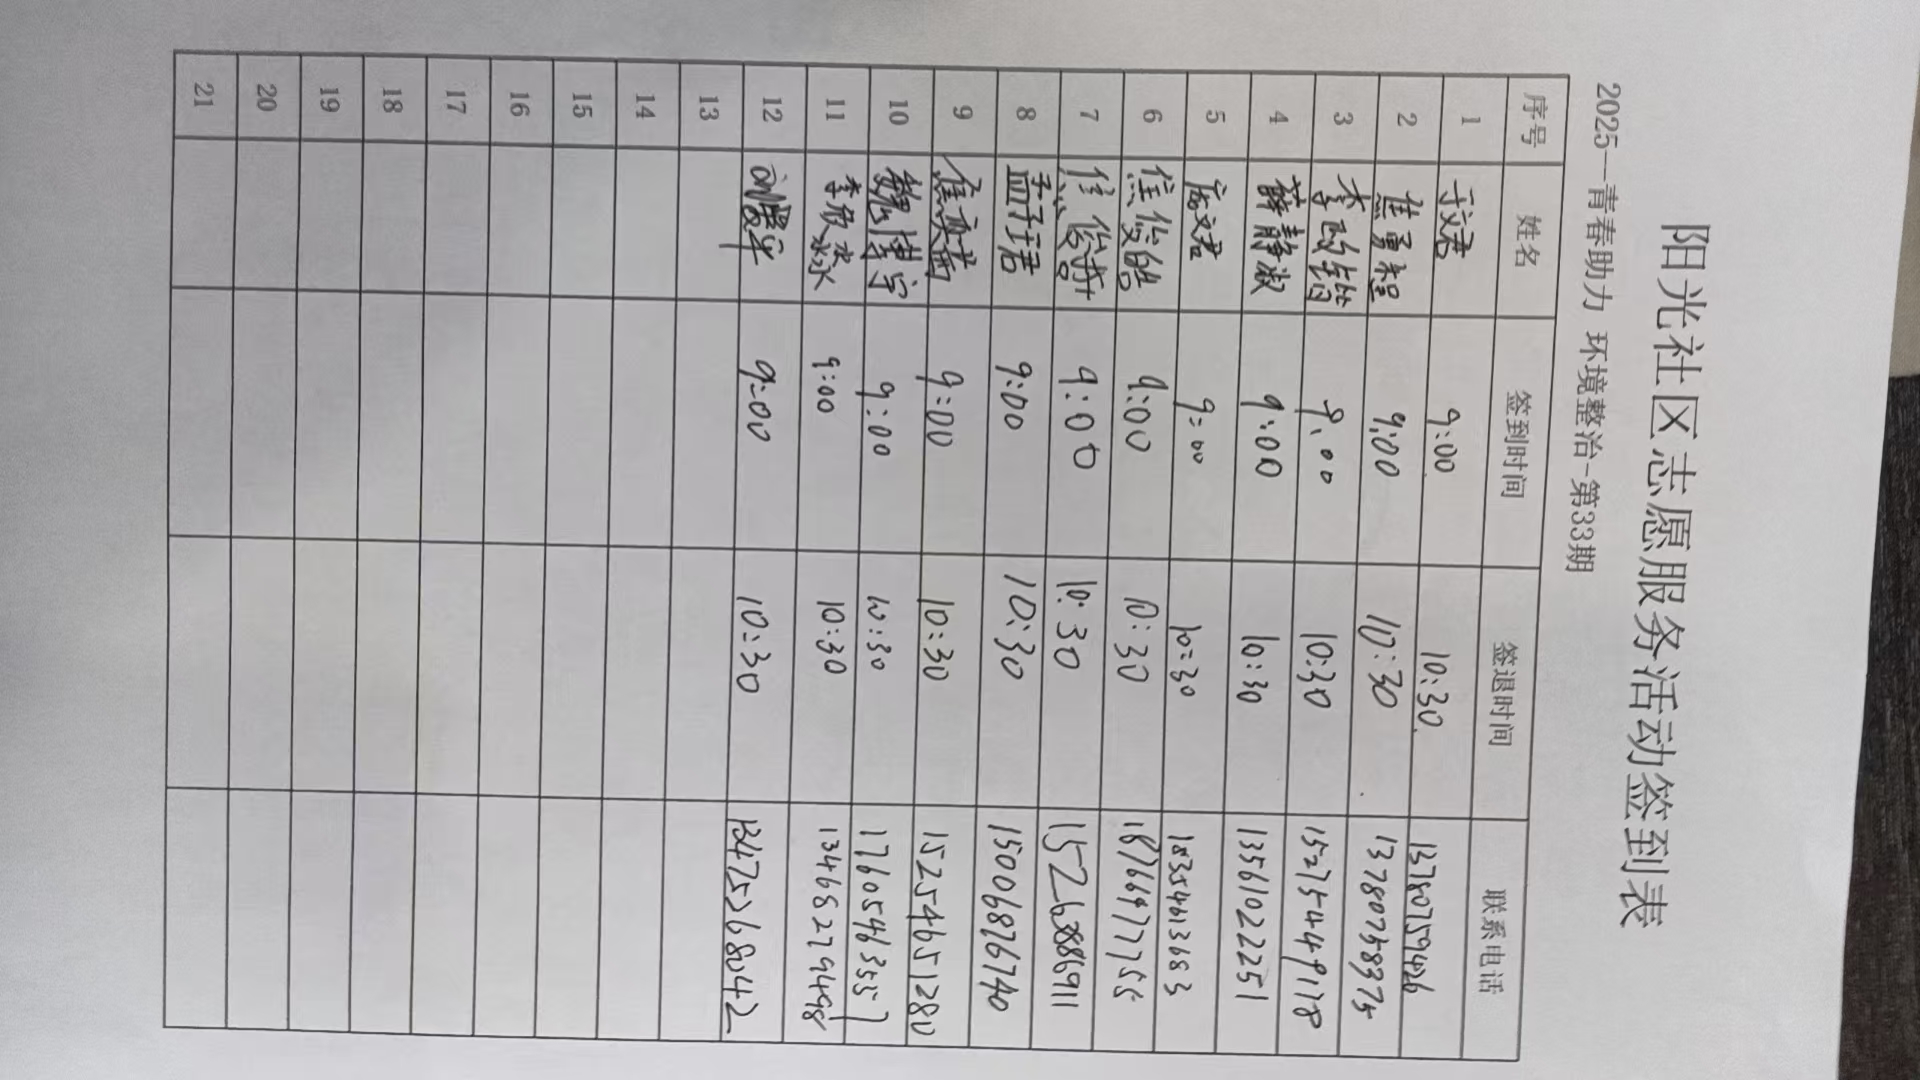 阳光社区志愿服务活动签到表
2025—青春助力 环境整治-第33期
序号 姓名 签到时间 签退时间 联系电话
1 于文君 9:00 10:30 13780759426
2 焦勇程 9:00 10:30 13780758375
3 李 9:00 10:30 15275449178
4 薛静淑 9:00 10:30 13561022251
5 文君 9:00 10:30 18354613683
6 焦俊皓 9:00 10:30 18766697755
7 焦俊 9:00 10:30 15263886911
8 孟子珺 9:00 10:30 15006876740
9 焦奕菡 9:00 10:30 15254651280
10 魏博宇 9:00 10:30 17605463557
11 李欣淼 9:00 10:30 13468279498
12 9:00 10:30 13475268042
13
14
15
16
17
18
19
20
21